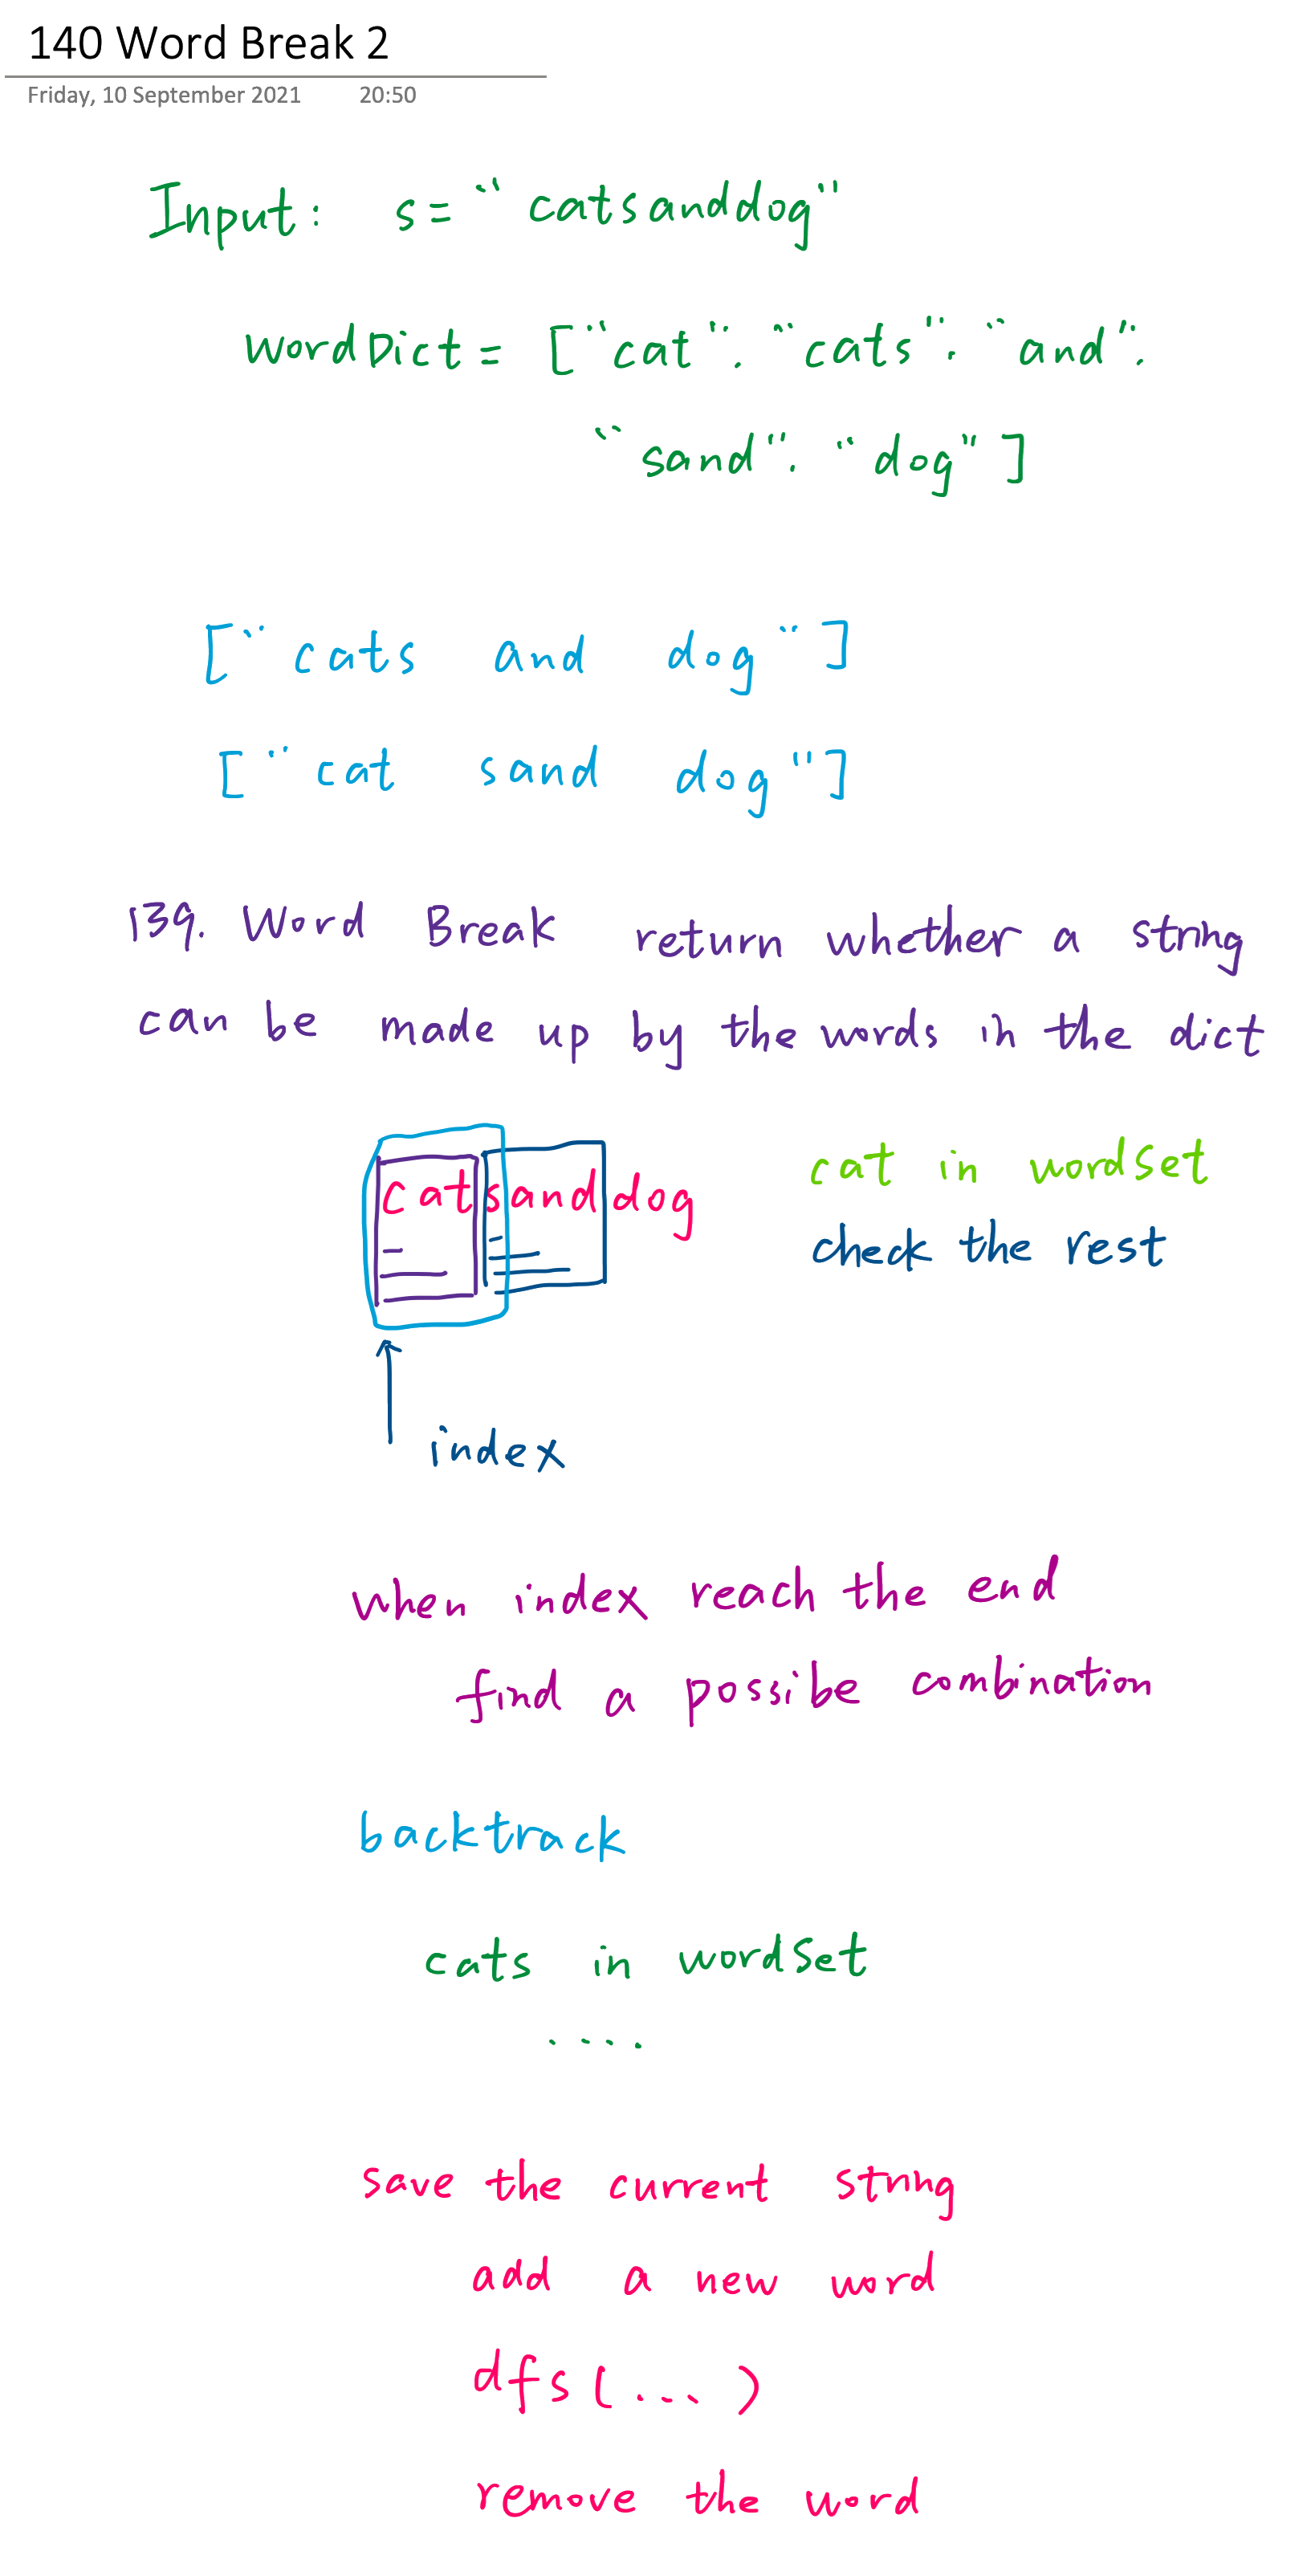 140 Word Break 2
Friday, 10 September 2021 20:50
Input: s= "catsanddog"
wordDict = ["cat", "cats", "and",
"sand", "dog"]
["cats and dog"]
["cat sand dog"]
139. Word Break return whether a string
can be made up by the words in the dict
catsanddog cat in wordSet
check the rest
index
when index reach the end
find a possibe combination
backtrack
cats in wordSet
....
save the current string
add a new word
dfs(...)
remove the word